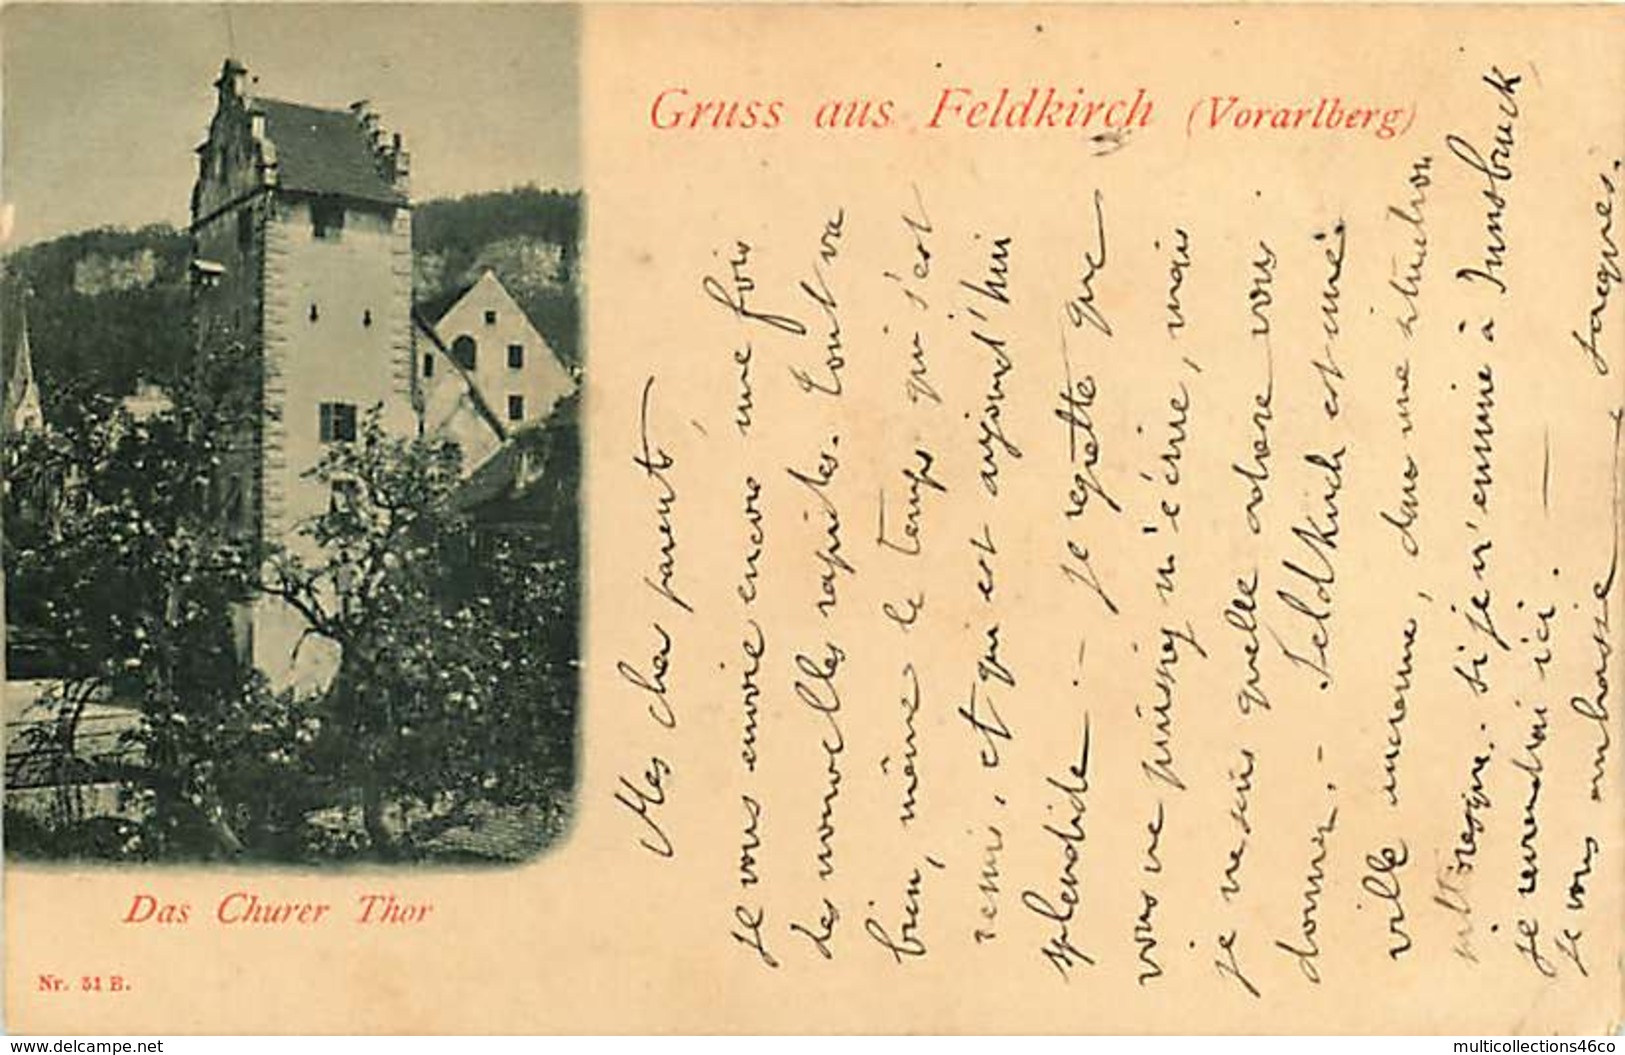 Gruss aus Feldkirch (Vorarlberg)
Mes cher parents,
je vous envoie encore une fois
des nouvelles rapides. Tout va
bien, même le temps qui s'est
remis, et qui est aujourd'hui
splendide. - je regrette que
vous ne puissiez m'écrire, mais
je ne sais quelle adresse vous
donner. - Feldkirch est une
ville ancienne, dans une situation
pittoresque. si je m'ennuie à Innsbruck
je reviendrai ici. —
je vous embrasse Jacques.
Das Churer Thor
Nr. 51 B.
www.delcampe.net
multicollections46co